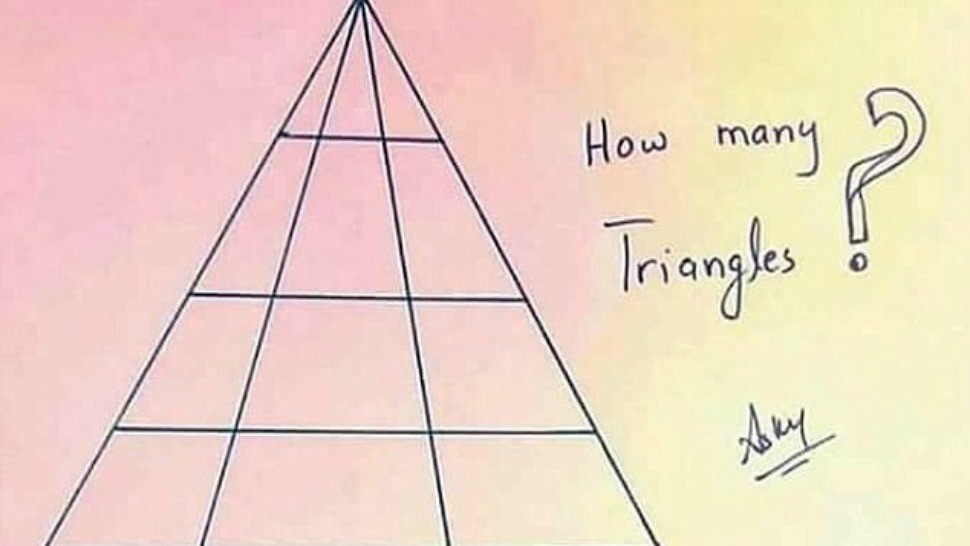 How many
Triangles ?